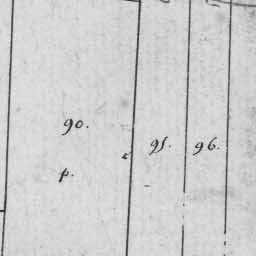 90.
95. 96.
p.